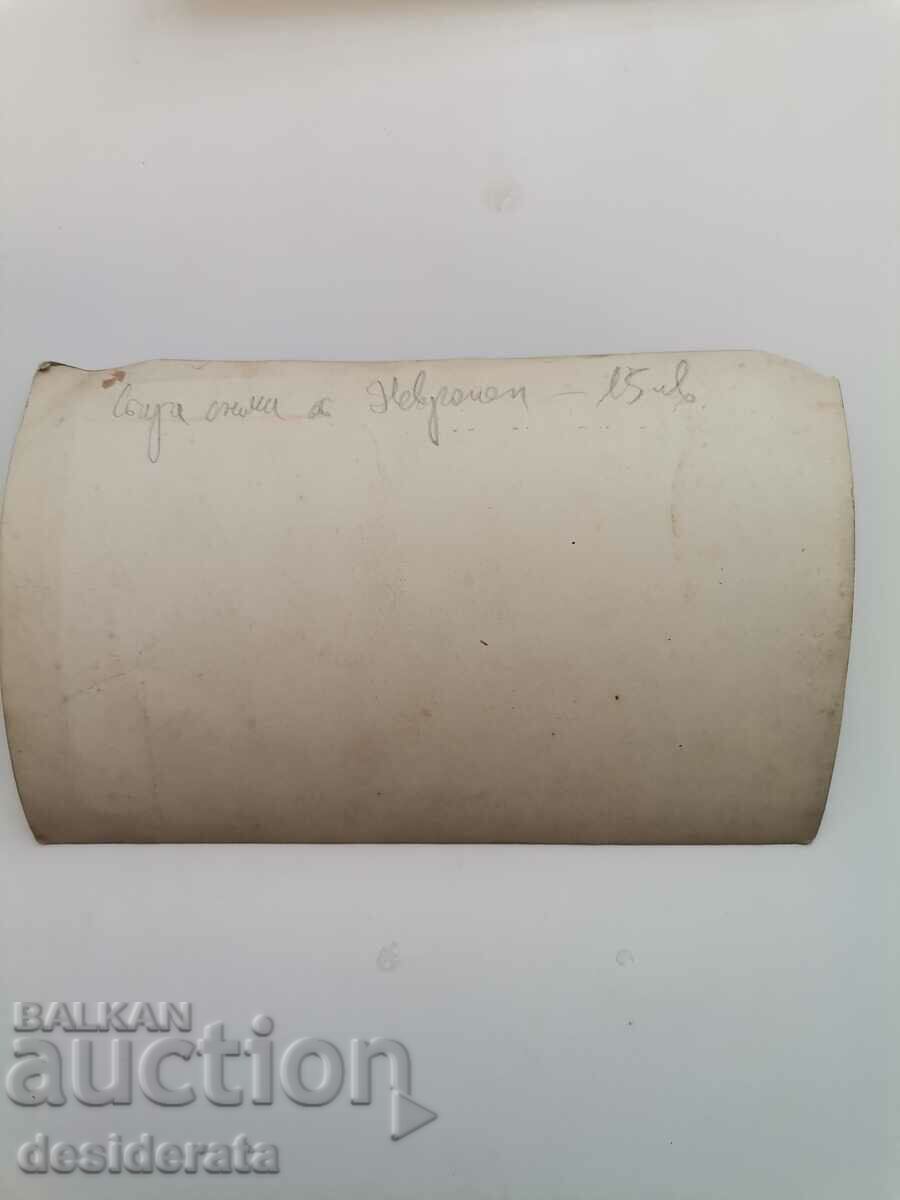 Стара снимка от Неврокоп – 15 лв.
BALKAN
auction
desiderata